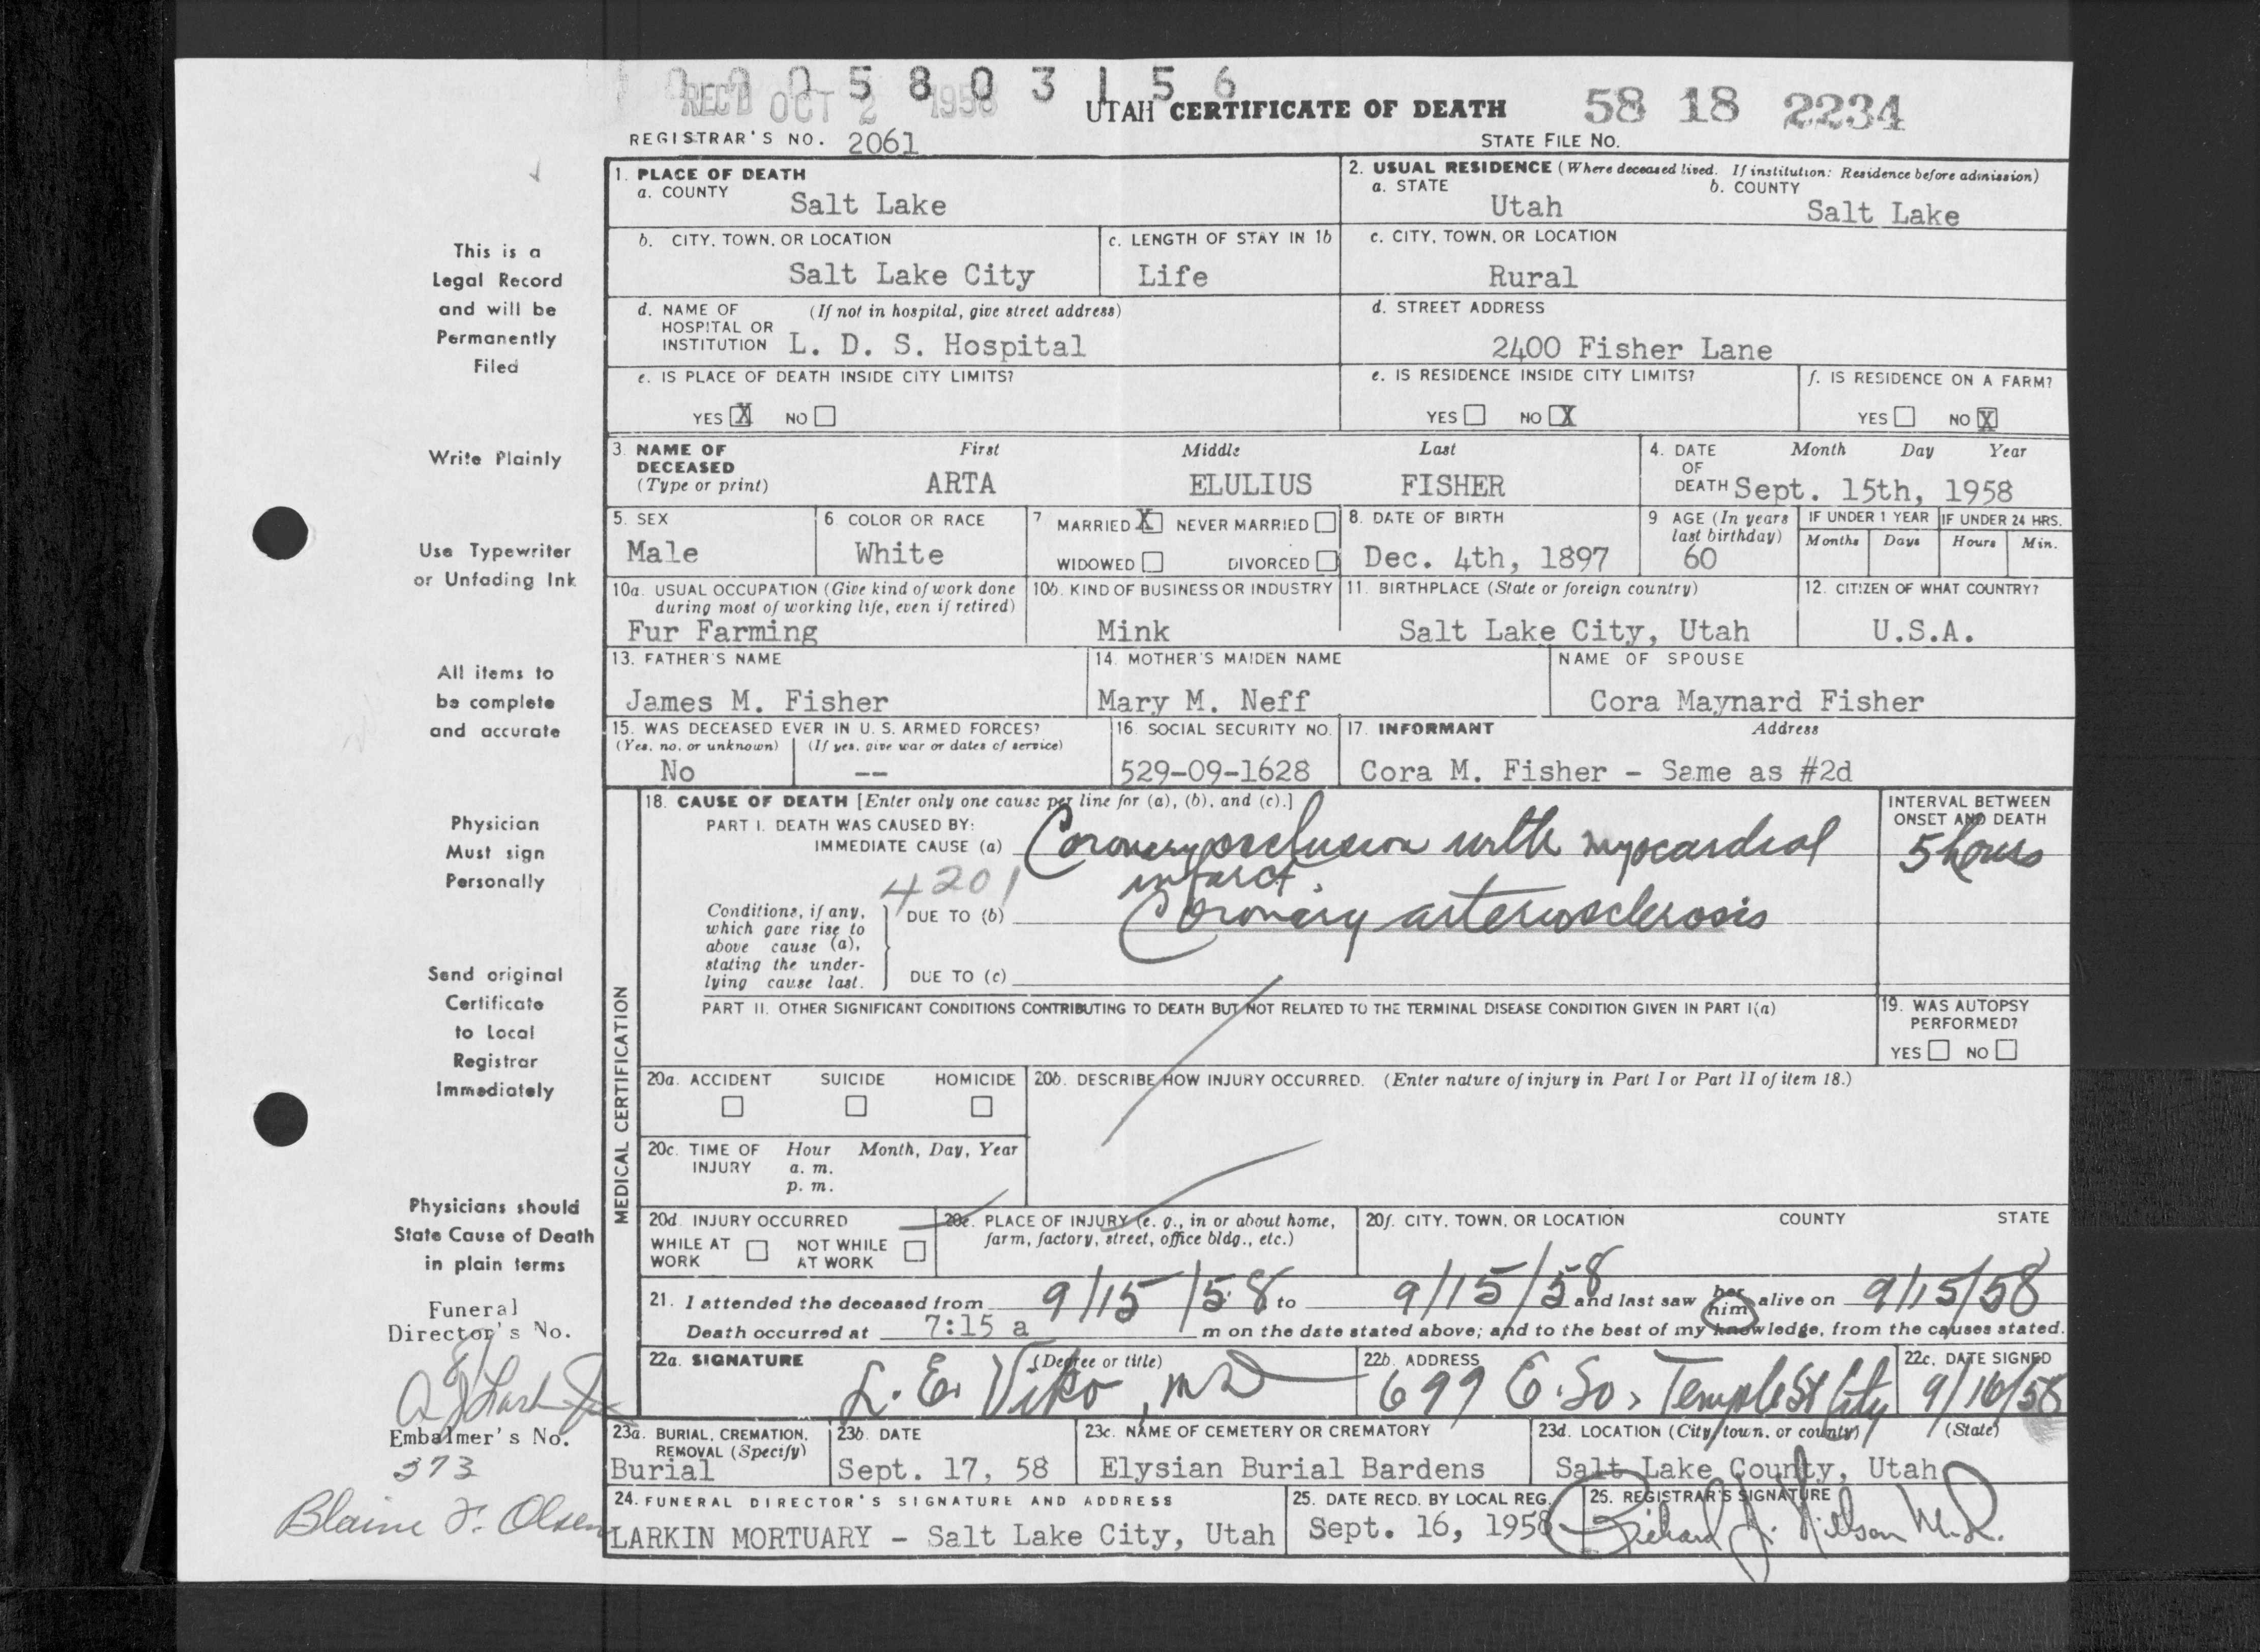 0 0 0 5 8 0 3 1 5 6
REC'D OCT 2 1958
UTAH CERTIFICATE OF DEATH
58 18 2234
REGISTRAR'S NO. 2061
STATE FILE NO.
This is a
Legal Record
and will be
Permanently
Filed
Write Plainly
Use Typewriter
or Unfading Ink
All items to
be complete
and accurate
Physician
Must sign
Personally
Send original
Certificate
to Local
Registrar
Immediately
Physicians should
State Cause of Death
in plain terms
Funeral
Director's No.
Embalmer's No.
373
Blaine F. Olsen
1. PLACE OF DEATH
a. COUNTY
Salt Lake
2. USUAL RESIDENCE (Where deceased lived. If institution: Residence before admission)
a. STATE b. COUNTY
Utah Salt Lake
b. CITY, TOWN, OR LOCATION
Salt Lake City
c. LENGTH OF STAY IN 1b
Life
c. CITY, TOWN, OR LOCATION
Rural
d. NAME OF (If not in hospital, give street address)
HOSPITAL OR
INSTITUTION L. D. S. Hospital
d. STREET ADDRESS
2400 Fisher Lane
e. IS PLACE OF DEATH INSIDE CITY LIMITS?
YES X NO
e. IS RESIDENCE INSIDE CITY LIMITS?
YES NO X
f. IS RESIDENCE ON A FARM?
YES NO X
3. NAME OF DECEASED (Type or print)
First Middle Last
ARTA ELULIUS FISHER
4. DATE OF DEATH
Month Day Year
Sept. 15th, 1958
5. SEX
Male
6. COLOR OR RACE
White
7 MARRIED X NEVER MARRIED
WIDOWED DIVORCED
8. DATE OF BIRTH
Dec. 4th, 1897
9 AGE (In years
last birthday)
60
IF UNDER 1 YEAR
Months Days
IF UNDER 24 HRS.
Hours Min.
10a. USUAL OCCUPATION (Give kind of work done
during most of working life, even if retired)
Fur Farming
10b. KIND OF BUSINESS OR INDUSTRY
Mink
11. BIRTHPLACE (State or foreign country)
Salt Lake City, Utah
12. CITIZEN OF WHAT COUNTRY?
U.S.A.
13. FATHER'S NAME
James M. Fisher
14. MOTHER'S MAIDEN NAME
Mary M. Neff
NAME OF SPOUSE
Cora Maynard Fisher
15. WAS DECEASED EVER IN U. S. ARMED FORCES?
(Yes, no, or unknown) (If yes, give war or dates of service)
No --
16. SOCIAL SECURITY NO.
529-09-1628
17. INFORMANT Address
Cora M. Fisher - Same as #2d
MEDICAL CERTIFICATION
18. CAUSE OF DEATH [Enter only one cause per line for (a), (b), and (c).]
PART I. DEATH WAS CAUSED BY:
IMMEDIATE CAUSE (a) Coronary occlusion with myocardial
infarct.
INTERVAL BETWEEN
ONSET AND DEATH
5 hours
4201
Conditions, if any,
which gave rise to
above cause (a),
stating the under-
lying cause last.
DUE TO (b) Coronary arteriosclerosis
DUE TO (c)
PART II. OTHER SIGNIFICANT CONDITIONS CONTRIBUTING TO DEATH BUT NOT RELATED TO THE TERMINAL DISEASE CONDITION GIVEN IN PART I(a)
19. WAS AUTOPSY
PERFORMED?
YES NO
20a. ACCIDENT SUICIDE HOMICIDE
20b. DESCRIBE HOW INJURY OCCURRED. (Enter nature of injury in Part I or Part II of item 18.)
20c. TIME OF INJURY
Hour Month, Day, Year
a. m.
p. m.
20d. INJURY OCCURRED
WHILE AT WORK NOT WHILE AT WORK
20e. PLACE OF INJURY (e. g., in or about home,
farm, factory, street, office bldg., etc.)
20f. CITY, TOWN, OR LOCATION COUNTY STATE
21. I attended the deceased from 9/15/58 to 9/15/58 and last saw her him alive on 9/15/58
Death occurred at 7:15 a m on the date stated above; and to the best of my knowledge, from the causes stated.
22a. SIGNATURE (Degree or title)
L. E. Viko, MD
22b. ADDRESS
699 E. So. Temple St City
22c. DATE SIGNED
9/16/58
23a. BURIAL, CREMATION,
REMOVAL (Specify)
Burial
23b. DATE
Sept. 17, 58
23c. NAME OF CEMETERY OR CREMATORY
Elysian Burial Bardens
23d. LOCATION (City, town, or county) (State)
Salt Lake County, Utah
24. FUNERAL DIRECTOR'S SIGNATURE AND ADDRESS
LARKIN MORTUARY - Salt Lake City, Utah
25. DATE RECD. BY LOCAL REG.
Sept. 16, 1958
25. REGISTRAR'S SIGNATURE
Richard J. Nilson M.D.